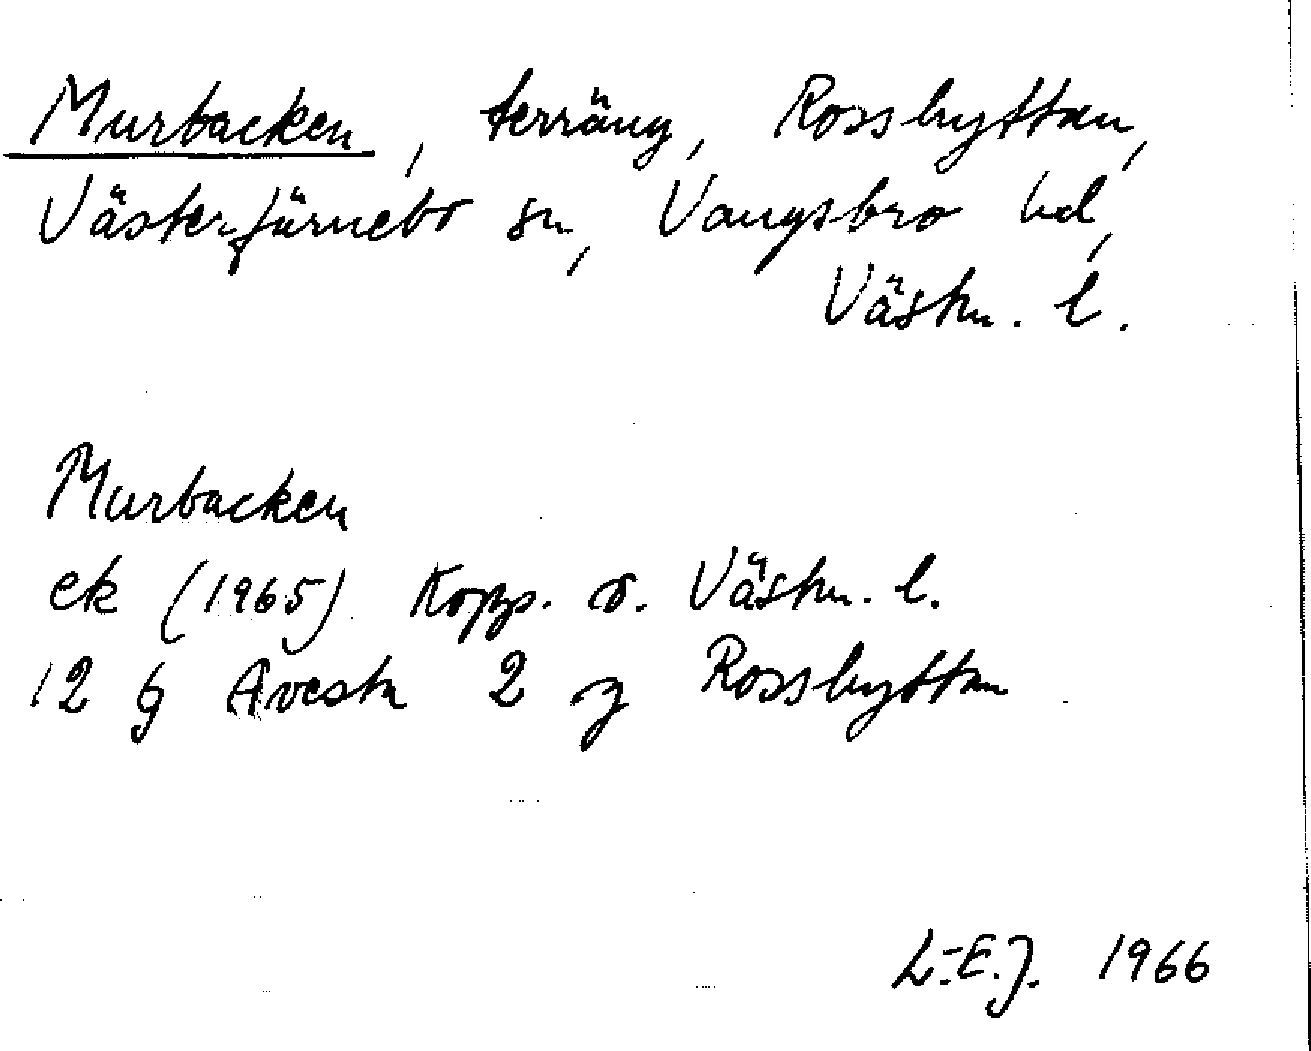 Murbacken, terräng, Rosshyttan,
Västerfärnebo sn, Vangsbro hd,
Västm. l.
Murbacken
ek (1965) Kopp. o. Västm. l.
12 G Avesta 2 g Rosshyttan
L.-E.J. 1966